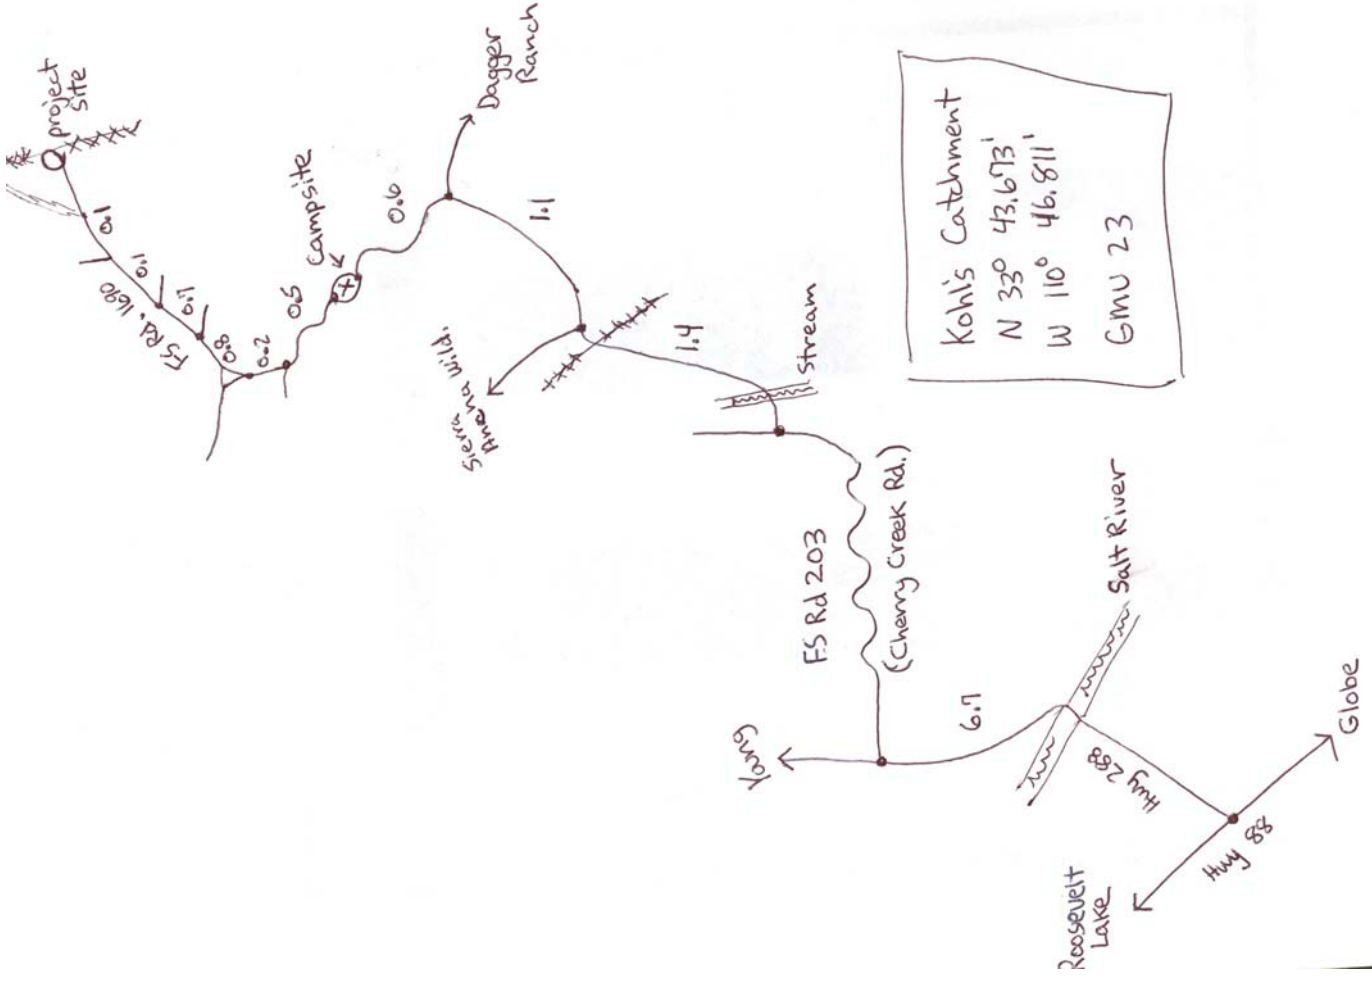 project
site
0.1
0.1
0.7
0.8
FS Rd. 1690
0.2
0.5
Campsite
0.6
Dagger
Ranch
1.1
Sierra
Ancha Wild.
1.4
Stream
Kohl's Catchment
N 33° 43.673'
W 110° 46.811'
GMU 23
FS Rd 203
(Cherry Creek Rd.)
Young
6.7
Salt River
Hwy 288
Hwy 88
Globe
Roosevelt
Lake